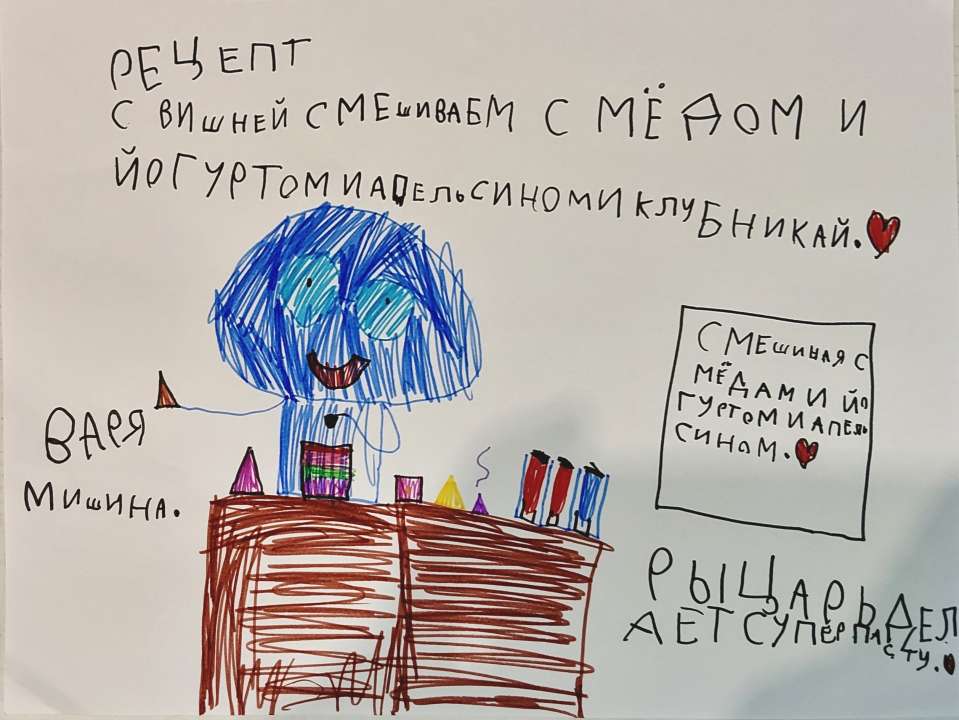 РЕЦЕПТ
С ВИШНЕЙ СМЕШИВАБМ С МЁДОМ И
ЙОГУРТОМ И АПЕЛЬСИНОМ И КЛУБНИКАЙ.
СМЕШИНАЯ С
МЁДАМ И ЙО
ГУРТОМ И АПЕЛЬ
СИНОМ.
ВАРЯ
МИШИНА.
РЫЦАРЬ ДЕЛ
АЕТ СУПЕР ПАСТУ.